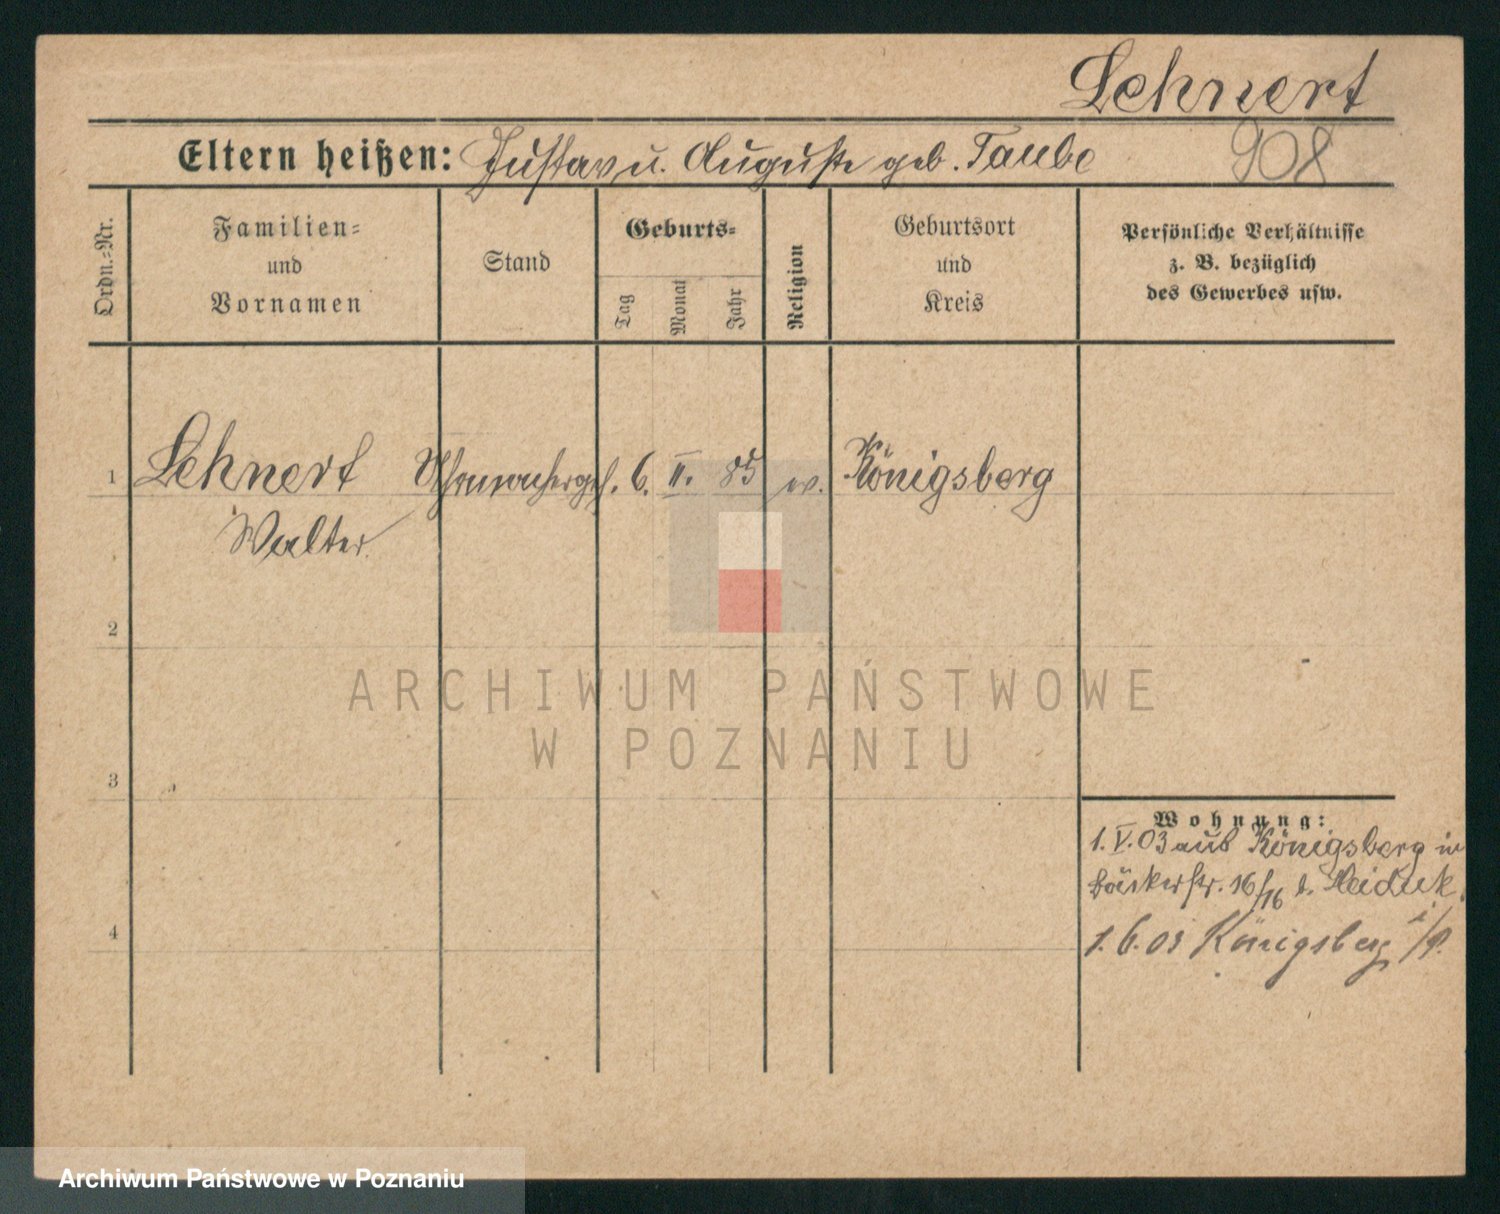 Lehnert
Eltern heißen: Gustav u. Auguste geb. Taube 908
Ordn.=Nr.
Familien=
und
Vornamen
Stand
Geburts=
Tag
Monat
Jahr
Religion
Geburtsort
und
Kreis
Persönliche Verhältnisse
z. B. bezüglich
des Gewerbes usw.
1 Lehnert Uhrmacherges. 6. II. 85 ev. Königsberg
Walter
2
ARCHIWUM PAŃSTWOWE
W POZNANIU
3
Wohnung:
1. V. 03 aus Königsberg in
Bäckerstr. 16/16 b. Heiduk.
4
1. 6. 03 Königsberg i/P.
Archiwum Państwowe w Poznaniu